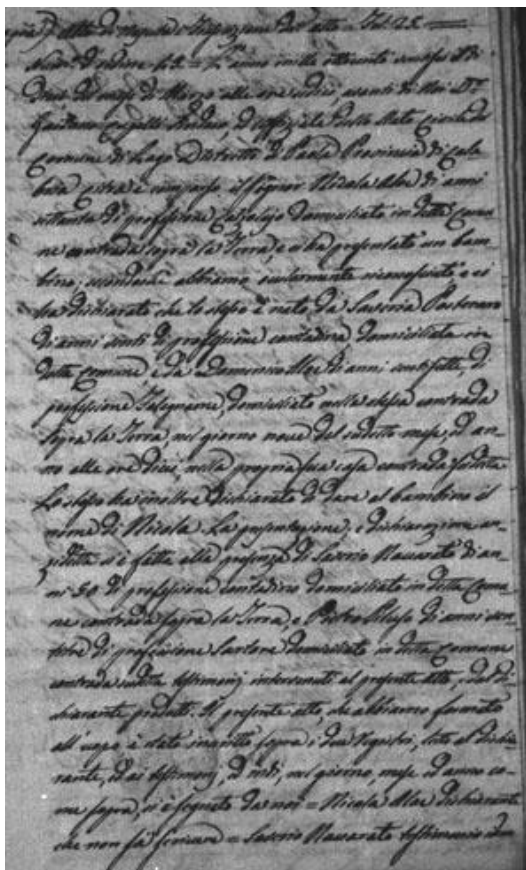 copia di Atto di nascita
Num. d'ordine 42 = L'anno mille ottocento
Dieci del mese di Marzo alle ore sedici, avanti di Noi D.r
Gaetano Cupelli Sindaco, ed Uffiziale dello Stato Civile del
Comune di Lago Distretto di Paola Provincia di Cala
bria Citra è comparso il Signor Nicola Aloe di anni
settanta di professione domiciliato in detto Comu
ne contrada sopra la Terra, e ci ha presentato un bam
bino, secondochè abbiamo ocularmente riconosciuto e ci
ha dichiarato che lo stesso è nato da Saveria Posteraro
di anni venti di professione contadina domiciliata in
detto Comune e da Domenico Aloe di anni ventisette, di
professione Falegname, domiciliato nella stessa contrada
Sopra la Terra, nel giorno nove del sudetto mese, ed an
no alle ore dieci, nella propria sua casa contrada sudetta
Lo stesso ha inoltre dichiarato di dare al bambino il
nome di Nicola. La presentazione, e dichiarazione an
zidetta si è fatta alla presenza di Saverio Naccarato di an
ni 50 di professione contadino domiciliato in detto Comu
ne contrada sopra la Terra, e Pietro di anni ven
di professione Sartore domiciliato in detto Comune
contrada sudetta testimonj intervenuti al presente atto, e dal di
chiarante prodotti. Il presente atto, che abbiamo formato
all'uopo è stato inscritto sopra i due registri, letto al dichia
rante, ed ai testimonj, ed indi, nel giorno, mese ed anno co
me sopra, si è segnato da noi = Nicola Aloe dichiarante
che non sà firmare = Saverio Naccarato testimonio